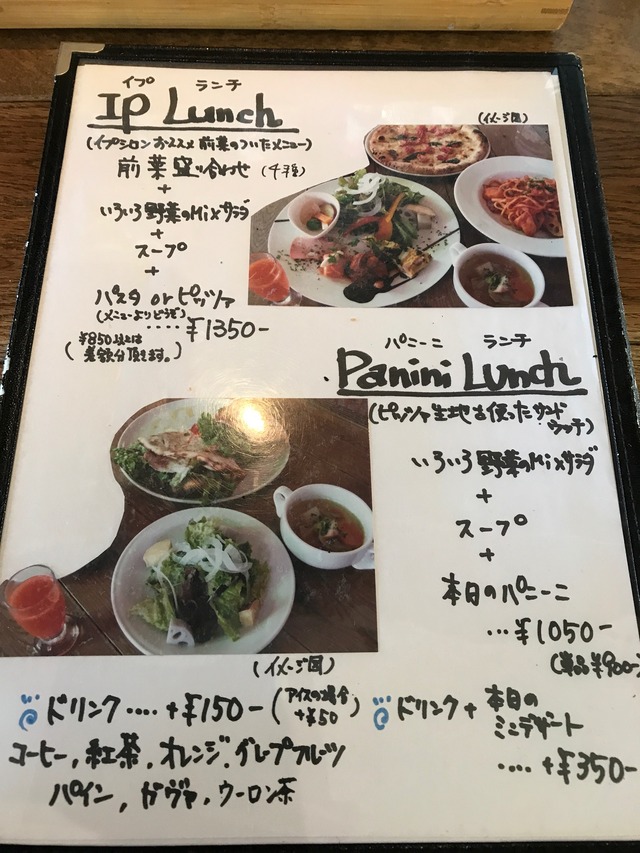 イプ ランチ
Ip Lunch
(イメージ図)
(イプシロンおススメ前菜のついたメニュー)
前菜盛り合わせ (4種)
+
いろいろ野菜のMixサラダ
+
スープ
+
パスタ or ピッツァ
(メニューよりどうぞ)
.... ¥1350-
(¥850以上は
差額分頂きます。)
パニーニ ランチ
Panini Lunch
(ピッツァ生地を使ったサンド
ウィッチ)
いろいろ野菜のMixサラダ
+
スープ
+
本日のパニーニ
...¥1050-
(単品¥900-)
(イメージ図)
ドリンク .... +¥150- (アイスの場合
+¥50)
コーヒー, 紅茶, オレンジ, グレープフルーツ
パイン, グァヴァ, ウーロン茶
ドリンク + 本日の
ミニデザート
.... +¥350-